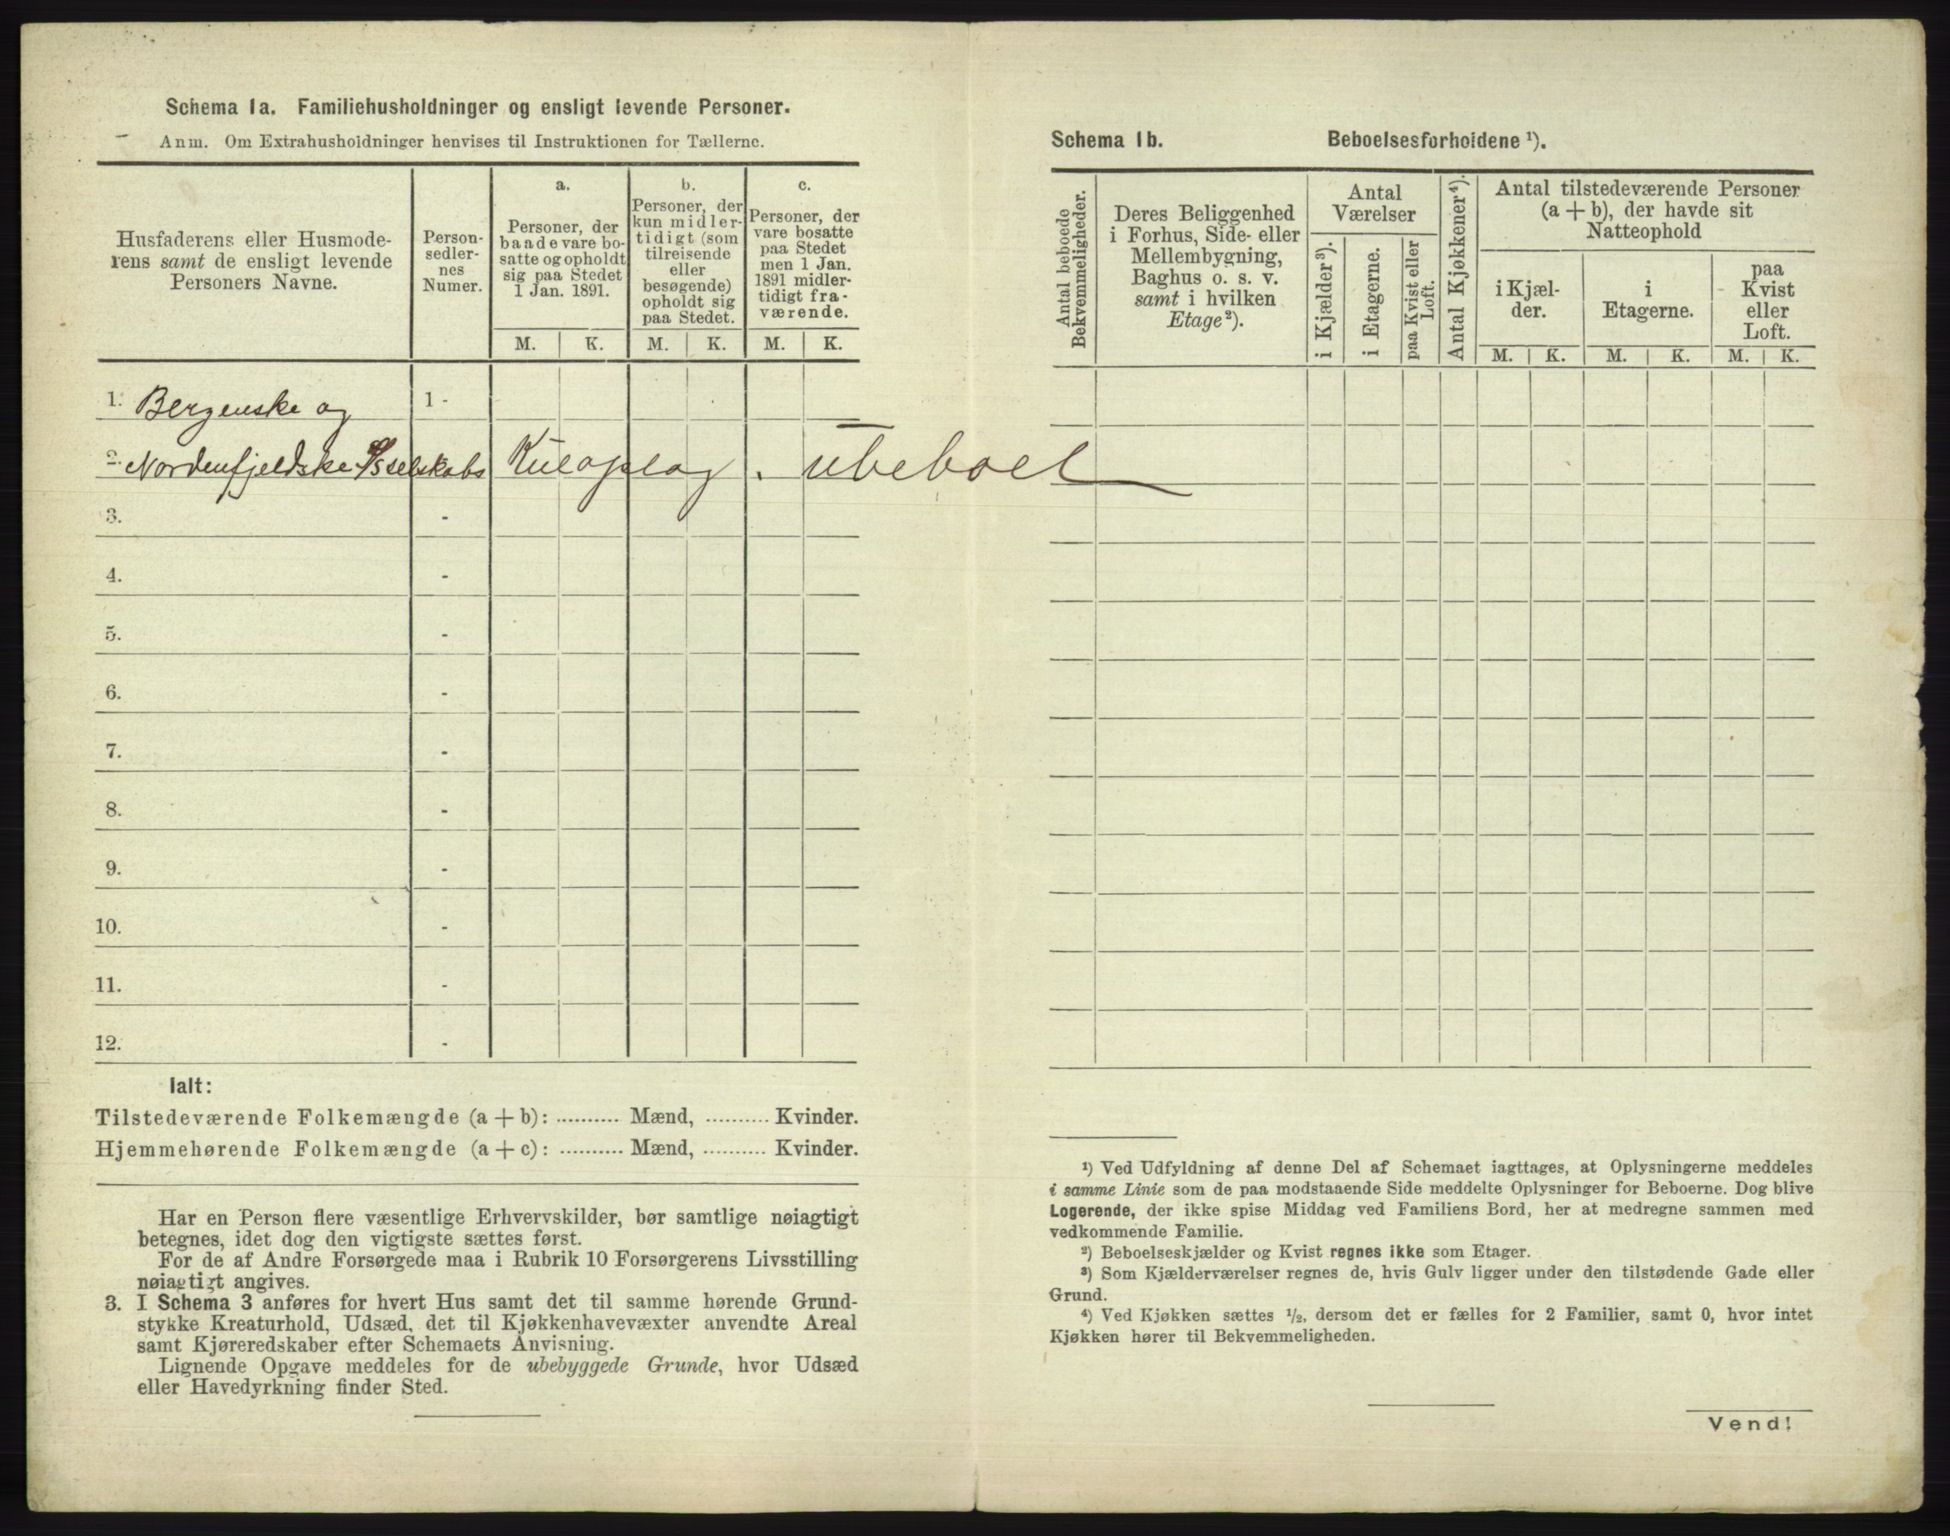 Schema 1a. Familiehusholdninger og ensligt levende Personer.
Anm. Om Extrahusholdninger henvises til Instruktionen for Tællerne.
Husfaderens eller Husmode-
rens samt de ensligt levende
Personers Navne.
Person-
sedler-
nes
Numer.
a.
Personer, der
baade vare bo-
satte og opholdt
sig paa Stedet
1 Jan. 1891.
b.
Personer, der
kun midler-
tidigt (som
tilreisende
eller
besøgende)
opholdt sig
paa Stedet.
c.
Personer, der
vare bosatte
paa Stedet
men 1 Jan.
1891 midler-
tidigt fra-
værende.
M. K. M. K. M. K.
1. Bergenske og 1 -
2. Nordenfjeldske D/Sselskabs Kuloplag. Ubeboet
3. -
4. -
5. -
6. -
7. -
8. -
9. -
10. -
11. -
12. -
Ialt:
Tilstedeværende Folkemængde (a + b): .......... Mænd, .......... Kvinder.
Hjemmehørende Folkemængde (a + c): .......... Mænd, .......... Kvinder.
Har en Person flere væsentlige Erhvervskilder, bør samtlige nøiagtigt
betegnes, idet dog den vigtigste sættes først.
For de af Andre Forsørgede maa i Rubrik 10 Forsørgerens Livsstilling
nøiagtigt angives.
3. I Schema 3 anføres for hvert Hus samt det til samme hørende Grund-
stykke Kreaturhold, Udsæd, det til Kjøkkenhavevæxter anvendte Areal
samt Kjøreredskaber efter Schemaets Anvisning.
Lignende Opgave meddeles for de ubebyggede Grunde, hvor Udsæd
eller Havedyrkning finder Sted.
Schema 1b. Beboelsesforholdene ¹).
Antal beboede
Bekvemmeligheder.
Deres Beliggenhed
i Forhus, Side- eller
Mellembygning,
Baghus o. s. v.
samt i hvilken
Etage²).
Antal
Værelser
i Kjælder³).
i Etagerne.
paa Kvist eller
Loft.
Antal Kjøkkener⁴).
Antal tilstedeværende Personer
(a + b), der havde sit
Natteophold
i Kjæl-
der.
i
Etagerne.
paa
Kvist
eller
Loft.
M. K. M. K. M. K.
¹) Ved Udfyldning af denne Del af Schemaet iagttages, at Oplysningerne meddeles
i samme Linie som de paa modstaaende Side meddelte Oplysninger for Beboerne. Dog blive
Logerende, der ikke spise Middag ved Familiens Bord, her at medregne sammen med
vedkommende Familie.
²) Beboelseskjælder og Kvist regnes ikke som Etager.
³) Som Kjælderværelser regnes de, hvis Gulv ligger under den tilstødende Gade eller
Grund.
⁴) Ved Kjøkken sættes ½, dersom det er fælles for 2 Familier, samt 0, hvor intet
Kjøkken hører til Bekvemmeligheden.
Vend!